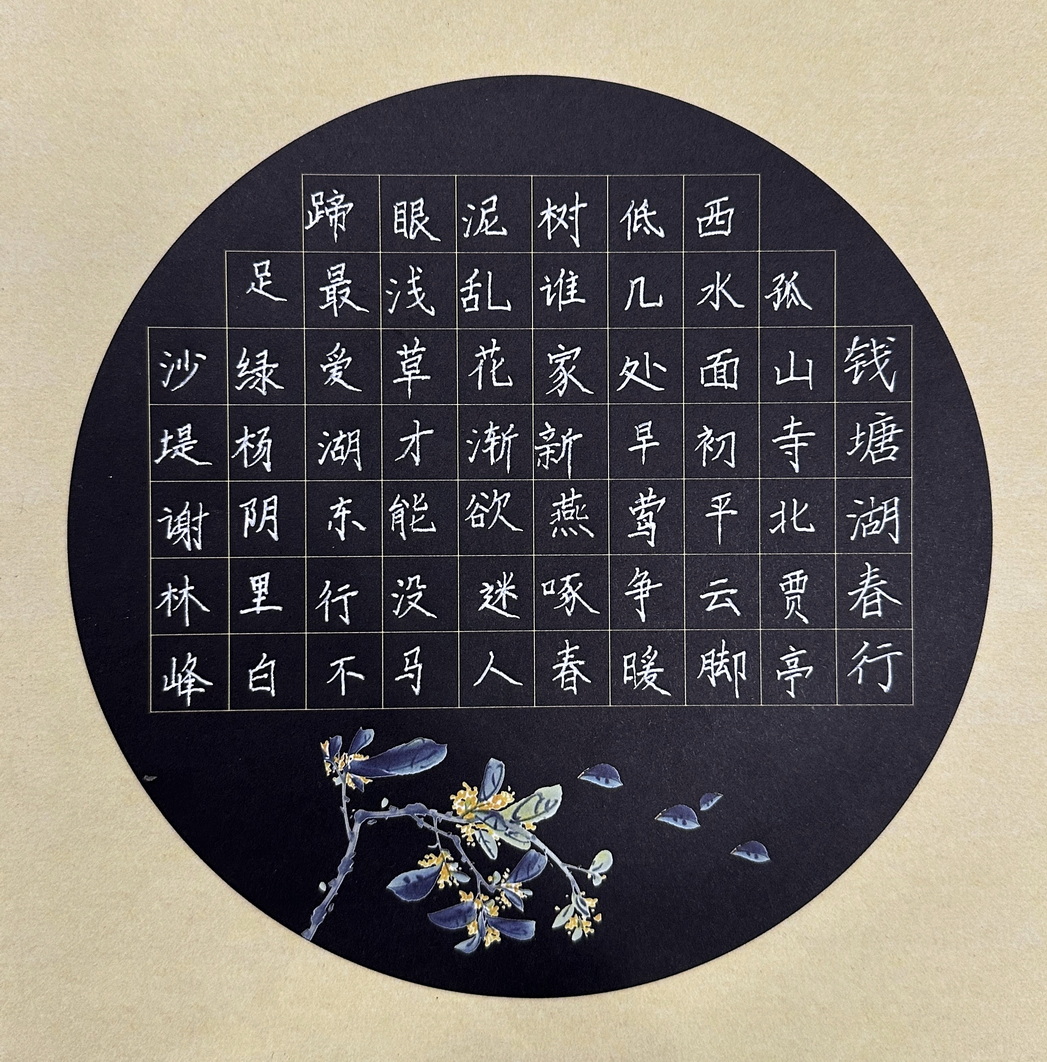 钱塘湖春行
孤山寺北贾亭
西水面初平云脚
低几处早莺争暖
树谁家新燕啄春
泥乱花渐欲迷人
眼浅草才能没马
蹄最爱湖东行不
足绿杨阴里白
沙堤谢林峰